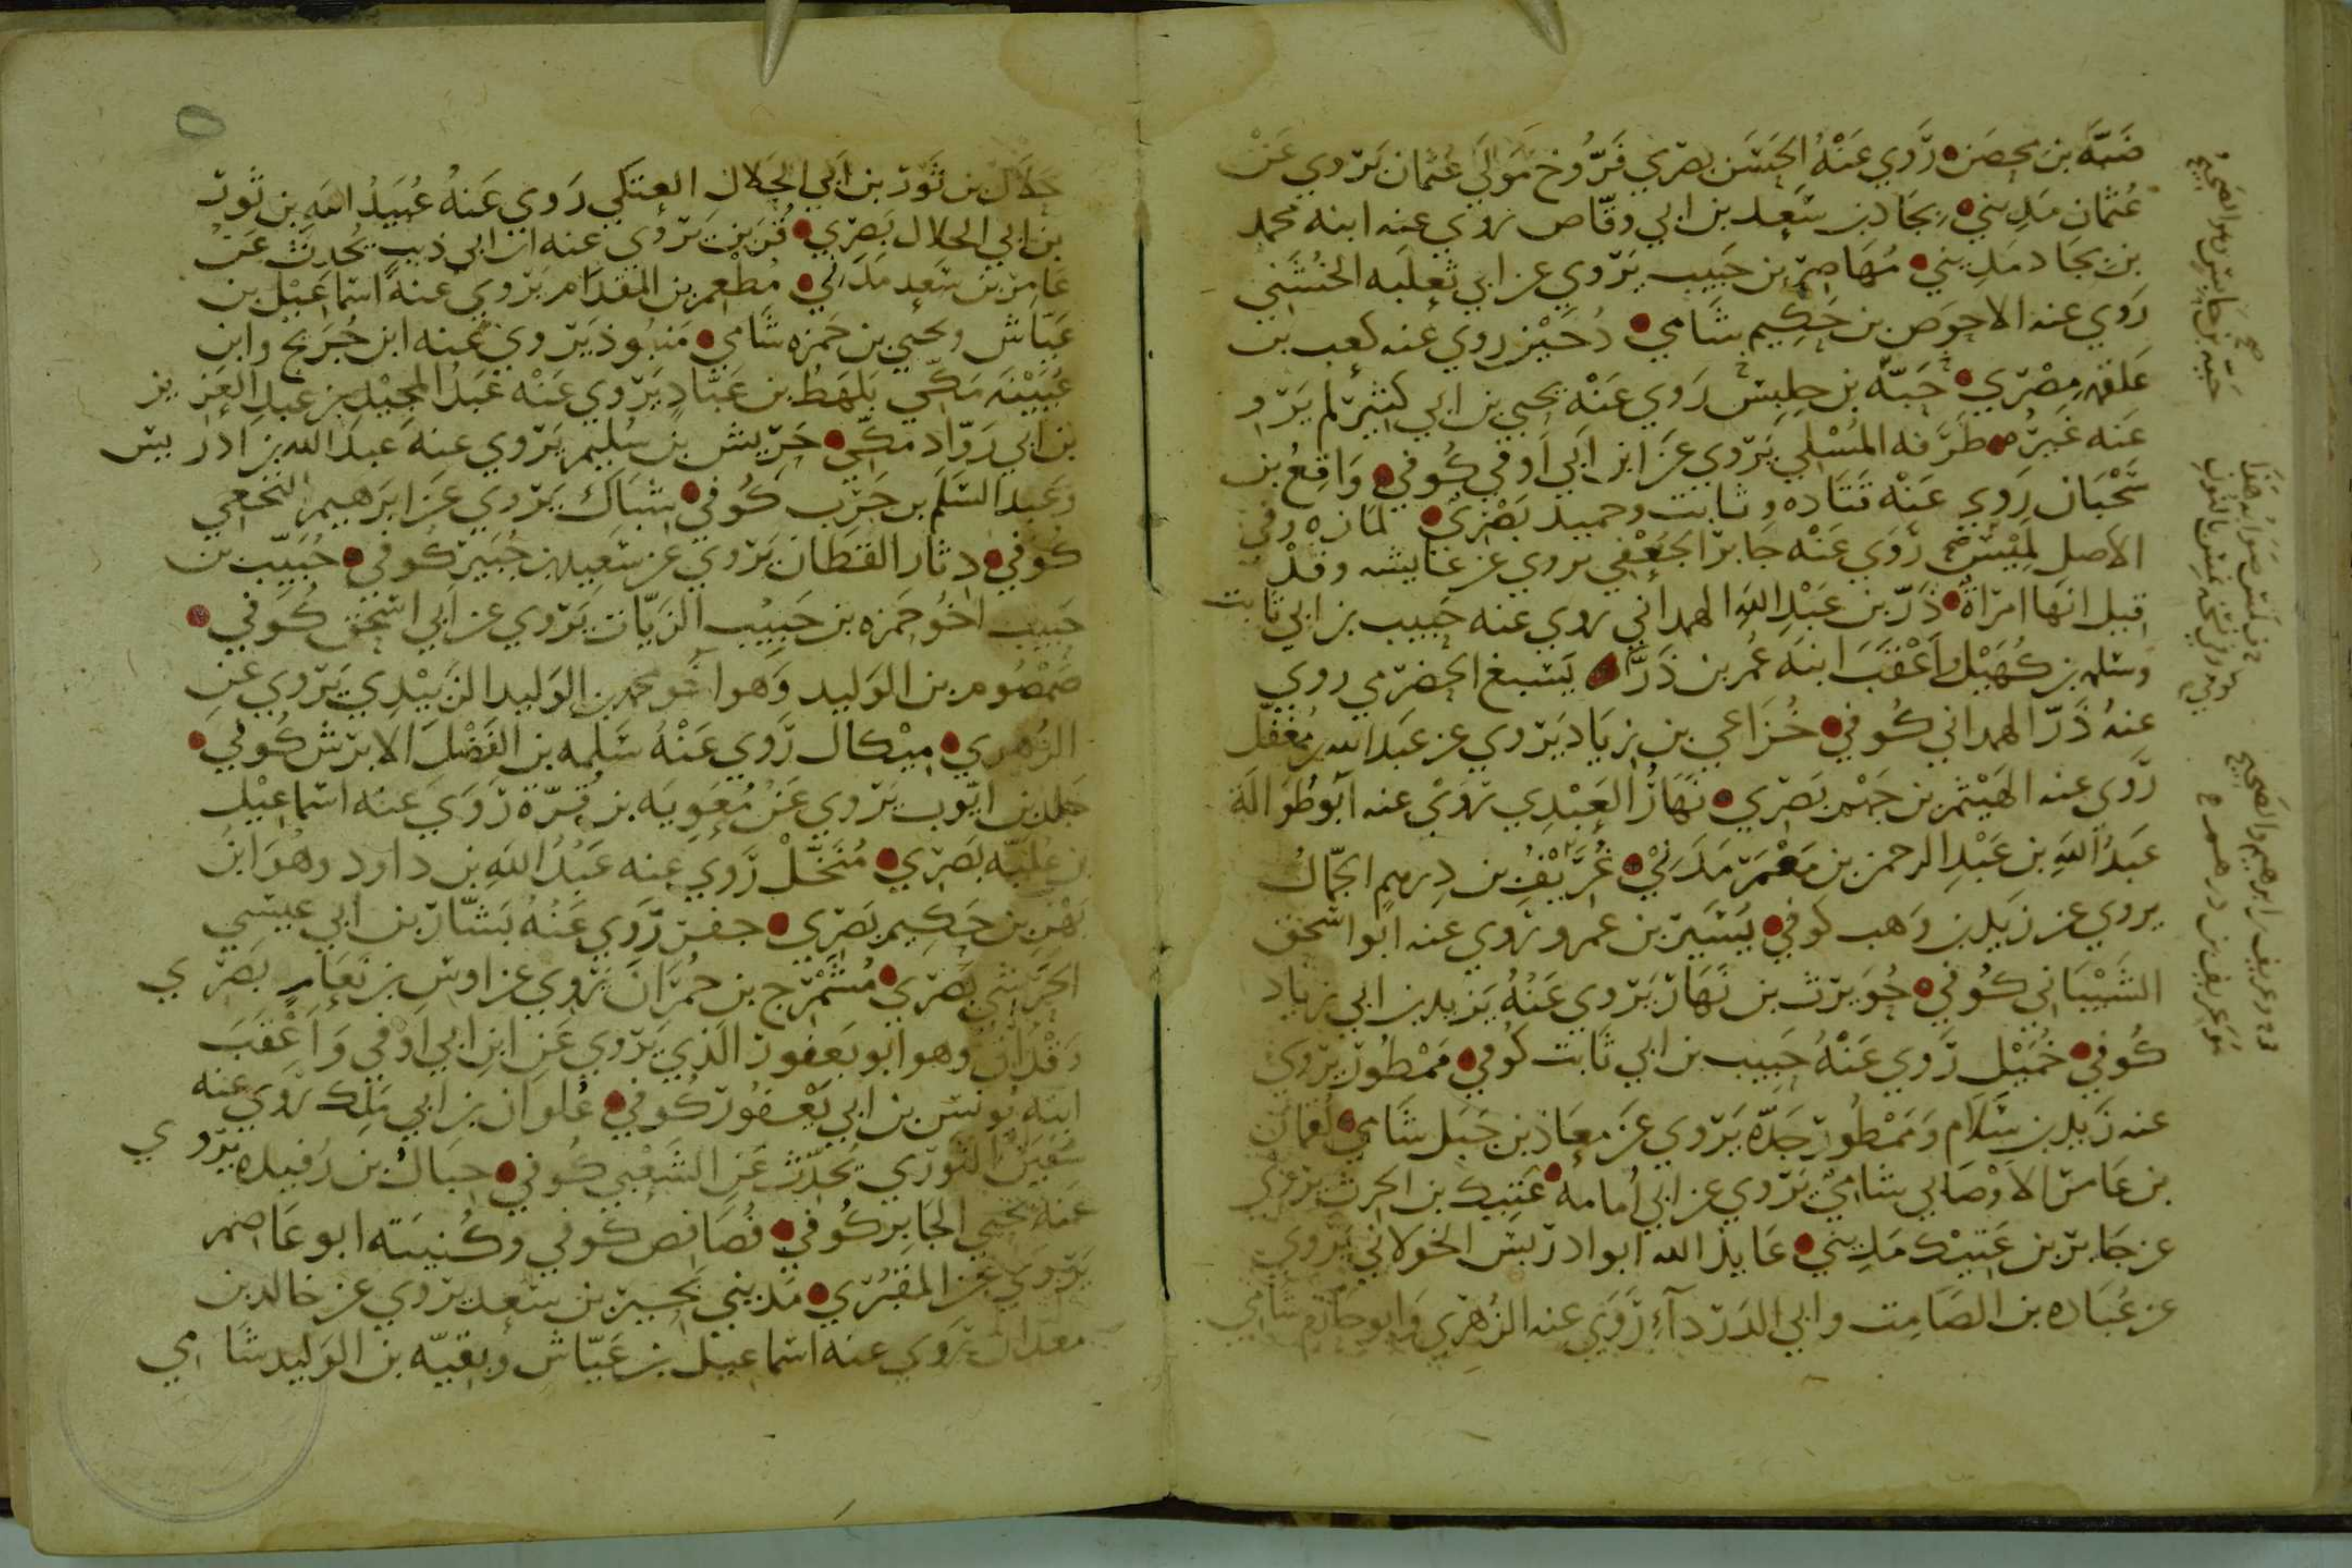 ضبّة بن محصن روي عنه الحسن بصري فرّوخ مولي عثمان يروي عن
عثمان مديني بجاد بن سعد بن ابي وقّاص روي عنه ابنه محمد
بن بجاد مديني مهاصر بن حبيب يروي عن ابي ثعلبه الخشني
روي عنه الاحوص بن حكيم شامي دخين روي عنه كعب بن
علقمه مصري حبّة بن حابس روي عنه يحيي بن ابي كثير لم يرو
عنه غيره طرفه المسلي يروي عن ابن ابي اوفي كوفي واقع بن
سحبان روي عنه قتاده وثابت وحميد بصري لمازه وفي
الاصل لميس روي عنه جابر الجعفي يروي عن عايشه وقد
قيل انها امراة ذرّ بن عبد الله الهمداني روي عنه حبيب بن ابي ثابت
وسلمه بن كهيل واعقب ابنه عمر بن ذرّ يسيع الحضرمي روي
عنه ذرّ الهمداني كوفي خزاعي بن زياد يروي عن عبد الله بن مغفل
روي عنه الهيثم بن جهم بصري نهار العبدي روي عنه ابو طوالة
عبد الله بن عبد الرحمن بن معمر مدني غريف بن درهم الجمال
يروي عن زيد بن وهب كوفي يسير بن عمرو روي عنه ابو اسحق
الشيباني كوفي جويرث بن نهار يروي عنه يزيد بن ابي زياد
كوفي خميل روي عنه حبيب بن ابي ثابت كوفي ممطور يروي
عنه زيد بن سلام وممطور جدّه يروي عن معاذ بن جبل شامي لقمان
بن عامر الاوصابي شامي يروي عن ابي امامه عتيك بن الحرث يروي
عن جابر بن عتيك مديني عايذ الله ابو ادريس الخولاني يروي
عن عباده بن الصامت وابي الدرداء روي عنه الزهري وابو حازم شامي
حبه بن حابس هو الصحيح
جلال بن ثور بن ابي الجلال العتكي روي عنه عبيد الله بن ثور
بن ابي الجلال بصري قرين يروي عنه ابن ابي ذيب يحدث عن
عامر بن سعد مدني مطعم بن المقدام يروي عنه اسماعيل بن
عياش ويحيي بن حمزه شامي منبوذ يروي عنه ابن جريج وابن
عيينه مكي بلهط بن عبّاد يروي عنه عبد المجيد بن عبد العزيز
بن ابي روّاد مكّي حريش بن سليم يروي عنه عبد الله بن ادريس
وعبد السلم بن حرب كوفي شباك يروي عن ابرهيم النخعي
كوفي دثار القطان يروي عن سعيد بن جبير كوفي حبيّب بن
حبيب اخو حمزه بن حبيب الزيّات يروي عن ابي اسحق كوفي
صمصوم بن الوليد وهو اخو محمد بن الوليد الزبيدي يروي عن
الزهري ميكال روي عنه سلمه بن الفضل الابرش كوفي
جلد بن ايّوب يروي عن معويه بن قرّة روي عنه اسماعيل
بن عليّه بصري منخّل روي عنه عبد الله بن داود وهو ابن
بهز بن حكيم بصري جفر روي عنه بشّار بن ابي عيسي
الحرشي بصري مشمرج بن حمران يروي عن اوس بن نعام بصري
وقدان وهو ابو يعفور الذي يروي عن ابن ابي اوفي واعقب
ابنه يونس بن ابي يعفور كوفي علوان بن ابي ملك روي عنه
سفين الثوري يحدّث عن الشعبي كوفي حبال بن رفيده يروي
عنه يحيي الجابر كوفي قصافص كوفي وكنيته ابو عاصم
يروي عن المقبري مديني بحير بن سعد يروي عن خالد بن
معدان روي عنه اسماعيل بن عيّاش وبقيّه بن الوليد شامي